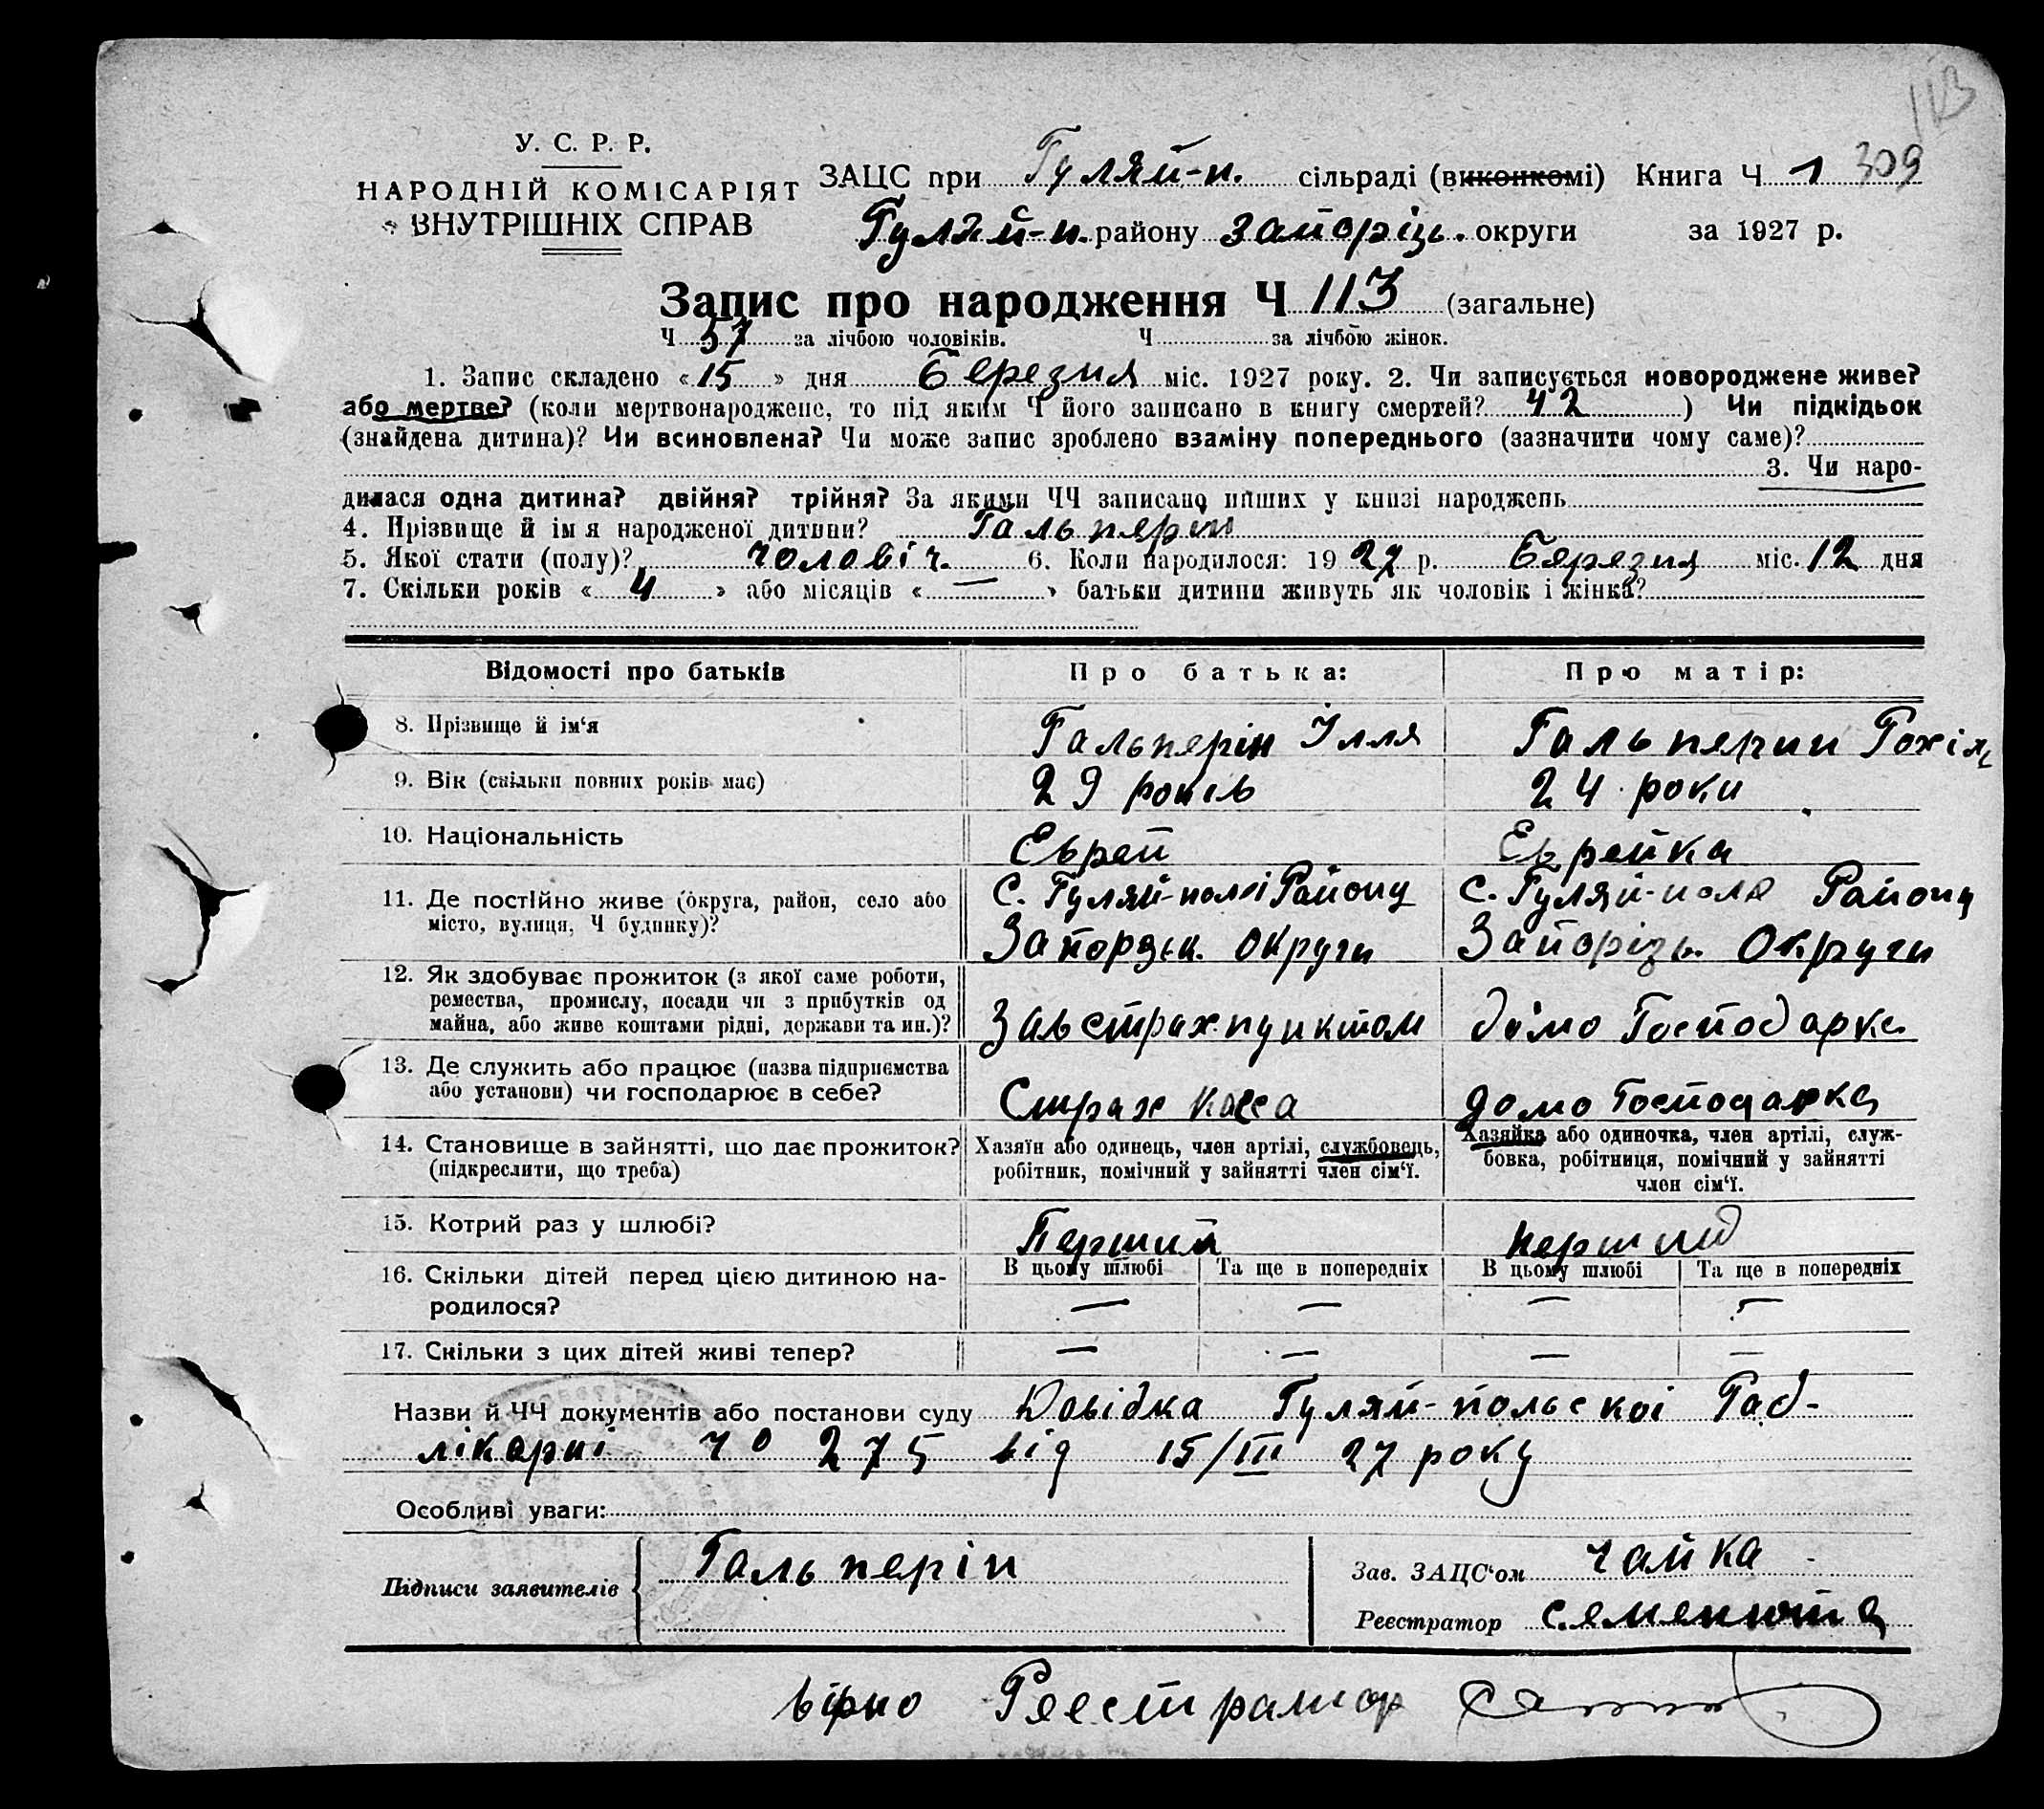 113
309
У. С. Р. Р.
НАРОДНІЙ КОМІСАРІЯТ
ВНУТРІШНІХ СПРАВ
ЗАЦС при Гуляй-п. сільраді (виконкомі) Книга Ч 1
Гуляй-п. району Запоріць. округи за 1927 р.
Запис про народження Ч 113 (загальне)
Ч 57 за лічбою чоловіків. Ч за лічбою жінок.
1. Запис складено «15» дня Березня міс. 1927 року. 2. Чи записується новороджене живе?
або мертве? (коли мертвонароджене, то під яким Ч його записано в книгу смертей? 42 ) Чи підкідьок
(знайдена дитина)? Чи всиновлена? Чи може запис зроблено взаміну попереднього (зазначити чому саме)?
3. Чи наро-
дилася одна дитина? двійня? трійня? За якими ЧЧ записано инших у книзі народжень
4. Прізвище й ім я народженої дитини? Гальперин
5. Якої стати (полу)? чоловіч. 6. Коли народилося: 1927 р. Березня міс. 12 дня
7. Скільки років « 4 » або місяців « — » батьки дитини живуть як чоловік і жінка?
Відомості про батьків Про батька: Про матір:
8. Прізвище й ім‘я Гальперін Ілля Гальперин Рохіля
9. Вік (скільки повних років має) 29 років 24 роки
10. Національність Еврей Еврейка
11. Де постійно живе (округа, район, село або С. Гуляй-полі Району С. Гуляй-поля Району
місто, вулиця, Ч будинку)? Запорізьк. округи Запорізь. Округи
12. Як здобуває прожиток (з якої саме роботи,
ремества, промислу, посади чи з прибутків од
майна, або живе коштами рідні, держави та ин.)? Завстрахпунктом домо Господарка
13. Де служить або працює (назва підприємства
або установи) чи господарює в себе? Страх касса домо Господарка
14. Становище в зайнятті, що дає прожиток? Хазяїн або одинець, член артілі, службовець, Хазяйка або одиночка, член артілі, служ-
(підкреслити, що треба) робітник, помічний у зайнятті член сім‘ї. бовка, робітниця, помічний у зайнятті
член сім‘ї.
15. Котрий раз у шлюбі? Перший перший
16. Скільки дітей перед цією дитиною на- В цьому шлюбі Та ще в попередніх В цьому шлюбі Та ще в попередніх
родилося? — — — —
17. Скільки з цих дітей живі тепер? — — — —
Назви й ЧЧ документів або постанови суду Довідка Гуляй-польскоі Рад-
лікарні чо 275 від 15/III 27 року
Особливі уваги:
Підписи заявителів Гальперін Зав. ЗАЦС‘ом Чайка
Реєстратор Семенюта
вірно Реестратор